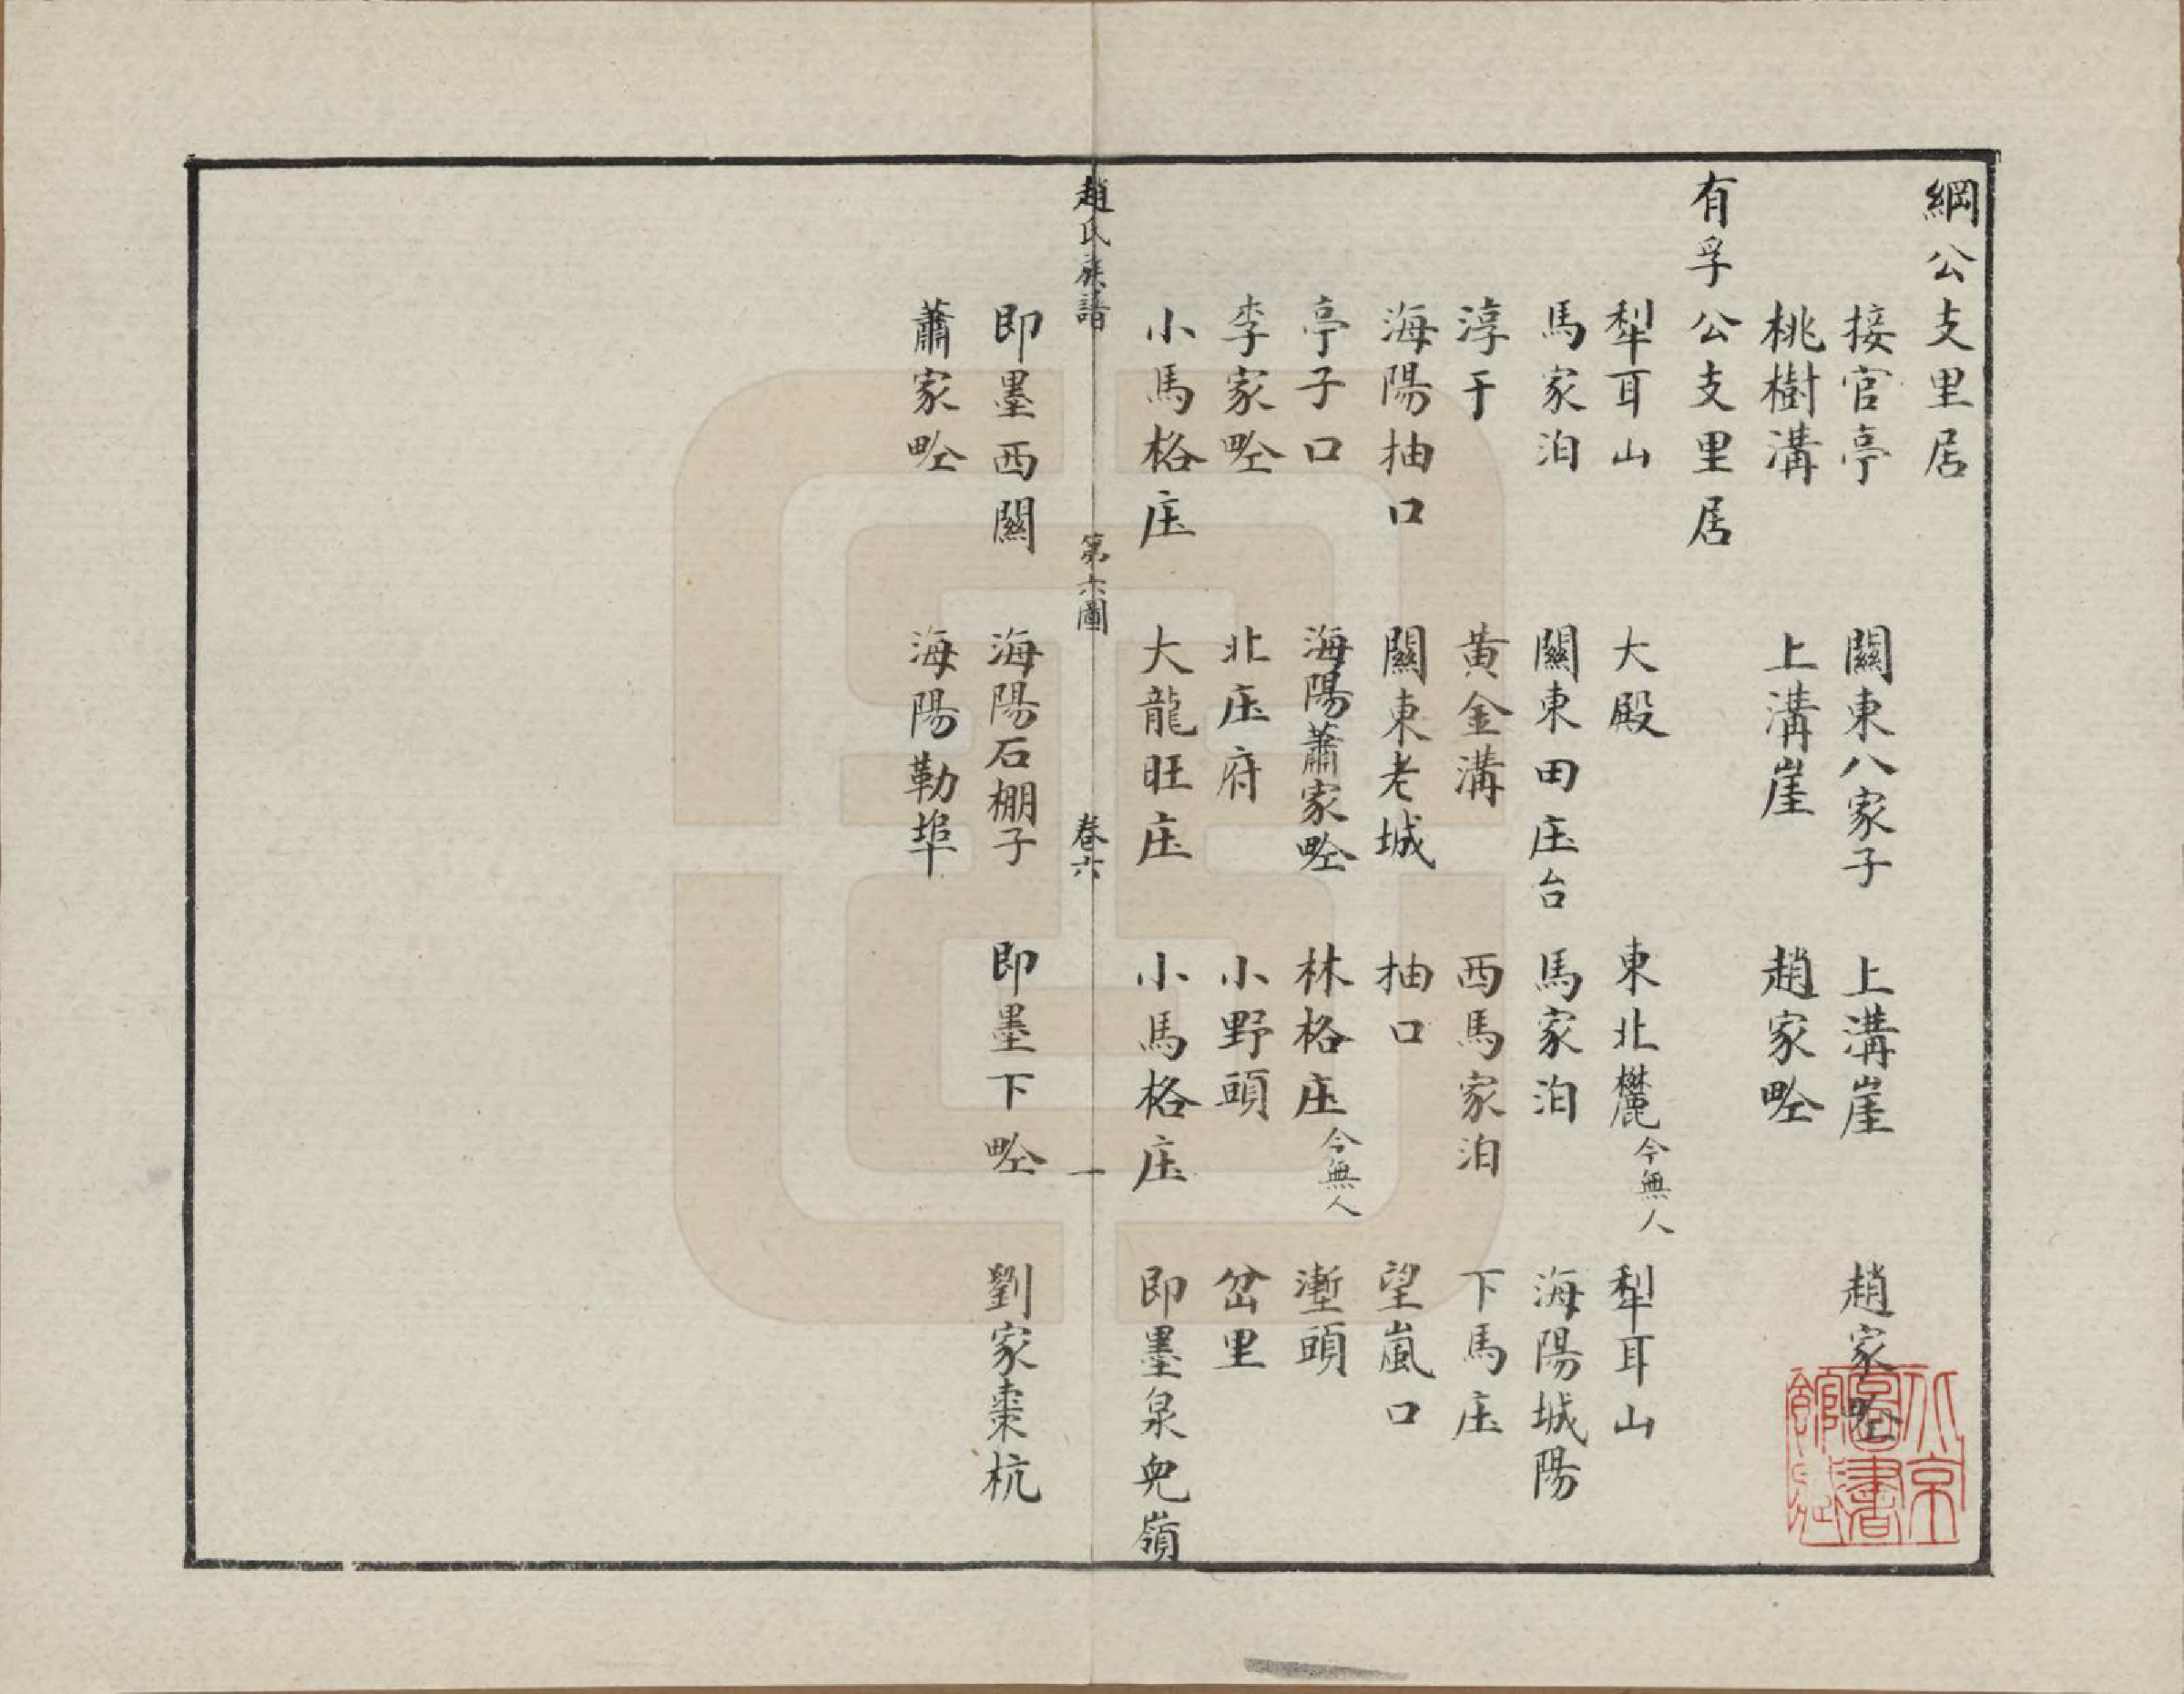 綱公支里居
接官亭　關東八家子　上溝崖　趙家疃
桃樹溝　上溝崖　趙家疃
有孚公支里居
犁耳山　大殿　東北麓今無人　犁耳山
馬家泊　關東田庄台　馬家泊　海陽城陽
淳于　黄金溝　西馬家泊　下馬庄
海陽抽口　關東老城　抽口　望嵐口
亭子口　海陽蕭家㽥　林格庄今無人　塹頭
李家㽥　北庄府　小野頭　岔里
小馬格庄　大龍旺庄　小馬格庄　即墨泉皃嶺
趙氏族譜　第六圖　卷六　一
即墨西關　海陽石棚子　即墨下㽥　劉家棗杭
蕭家㽥　海陽勒埠
北京圖書館藏